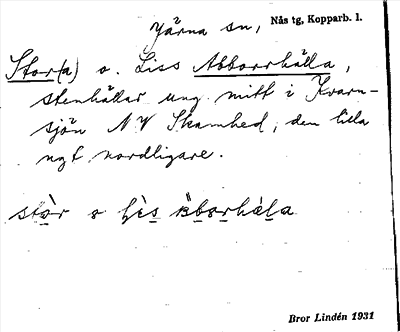 Järna sn, Nås tg, Kopparb. l.
Stor(a) o. Liss Abborrhälla,
stenhällar ung. mitt i Kvarn-
sjön NV Skamhed, den lilla
ngt nordligare.
stòr o lìs àborhæla
Bror Lindén 1931